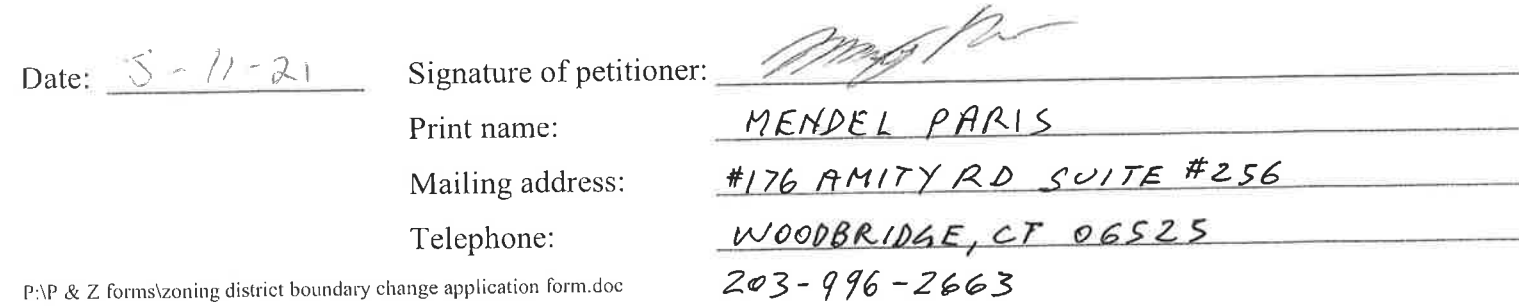 Date: 5-11-21 Signature of petitioner:
Print name: MENDEL PARIS
Mailing address: #176 AMITY RD SUITE #256
Telephone: WOODBRIDGE, CT 06525
P:\P & Z forms\zoning district boundary change application form.doc 203-996-2663